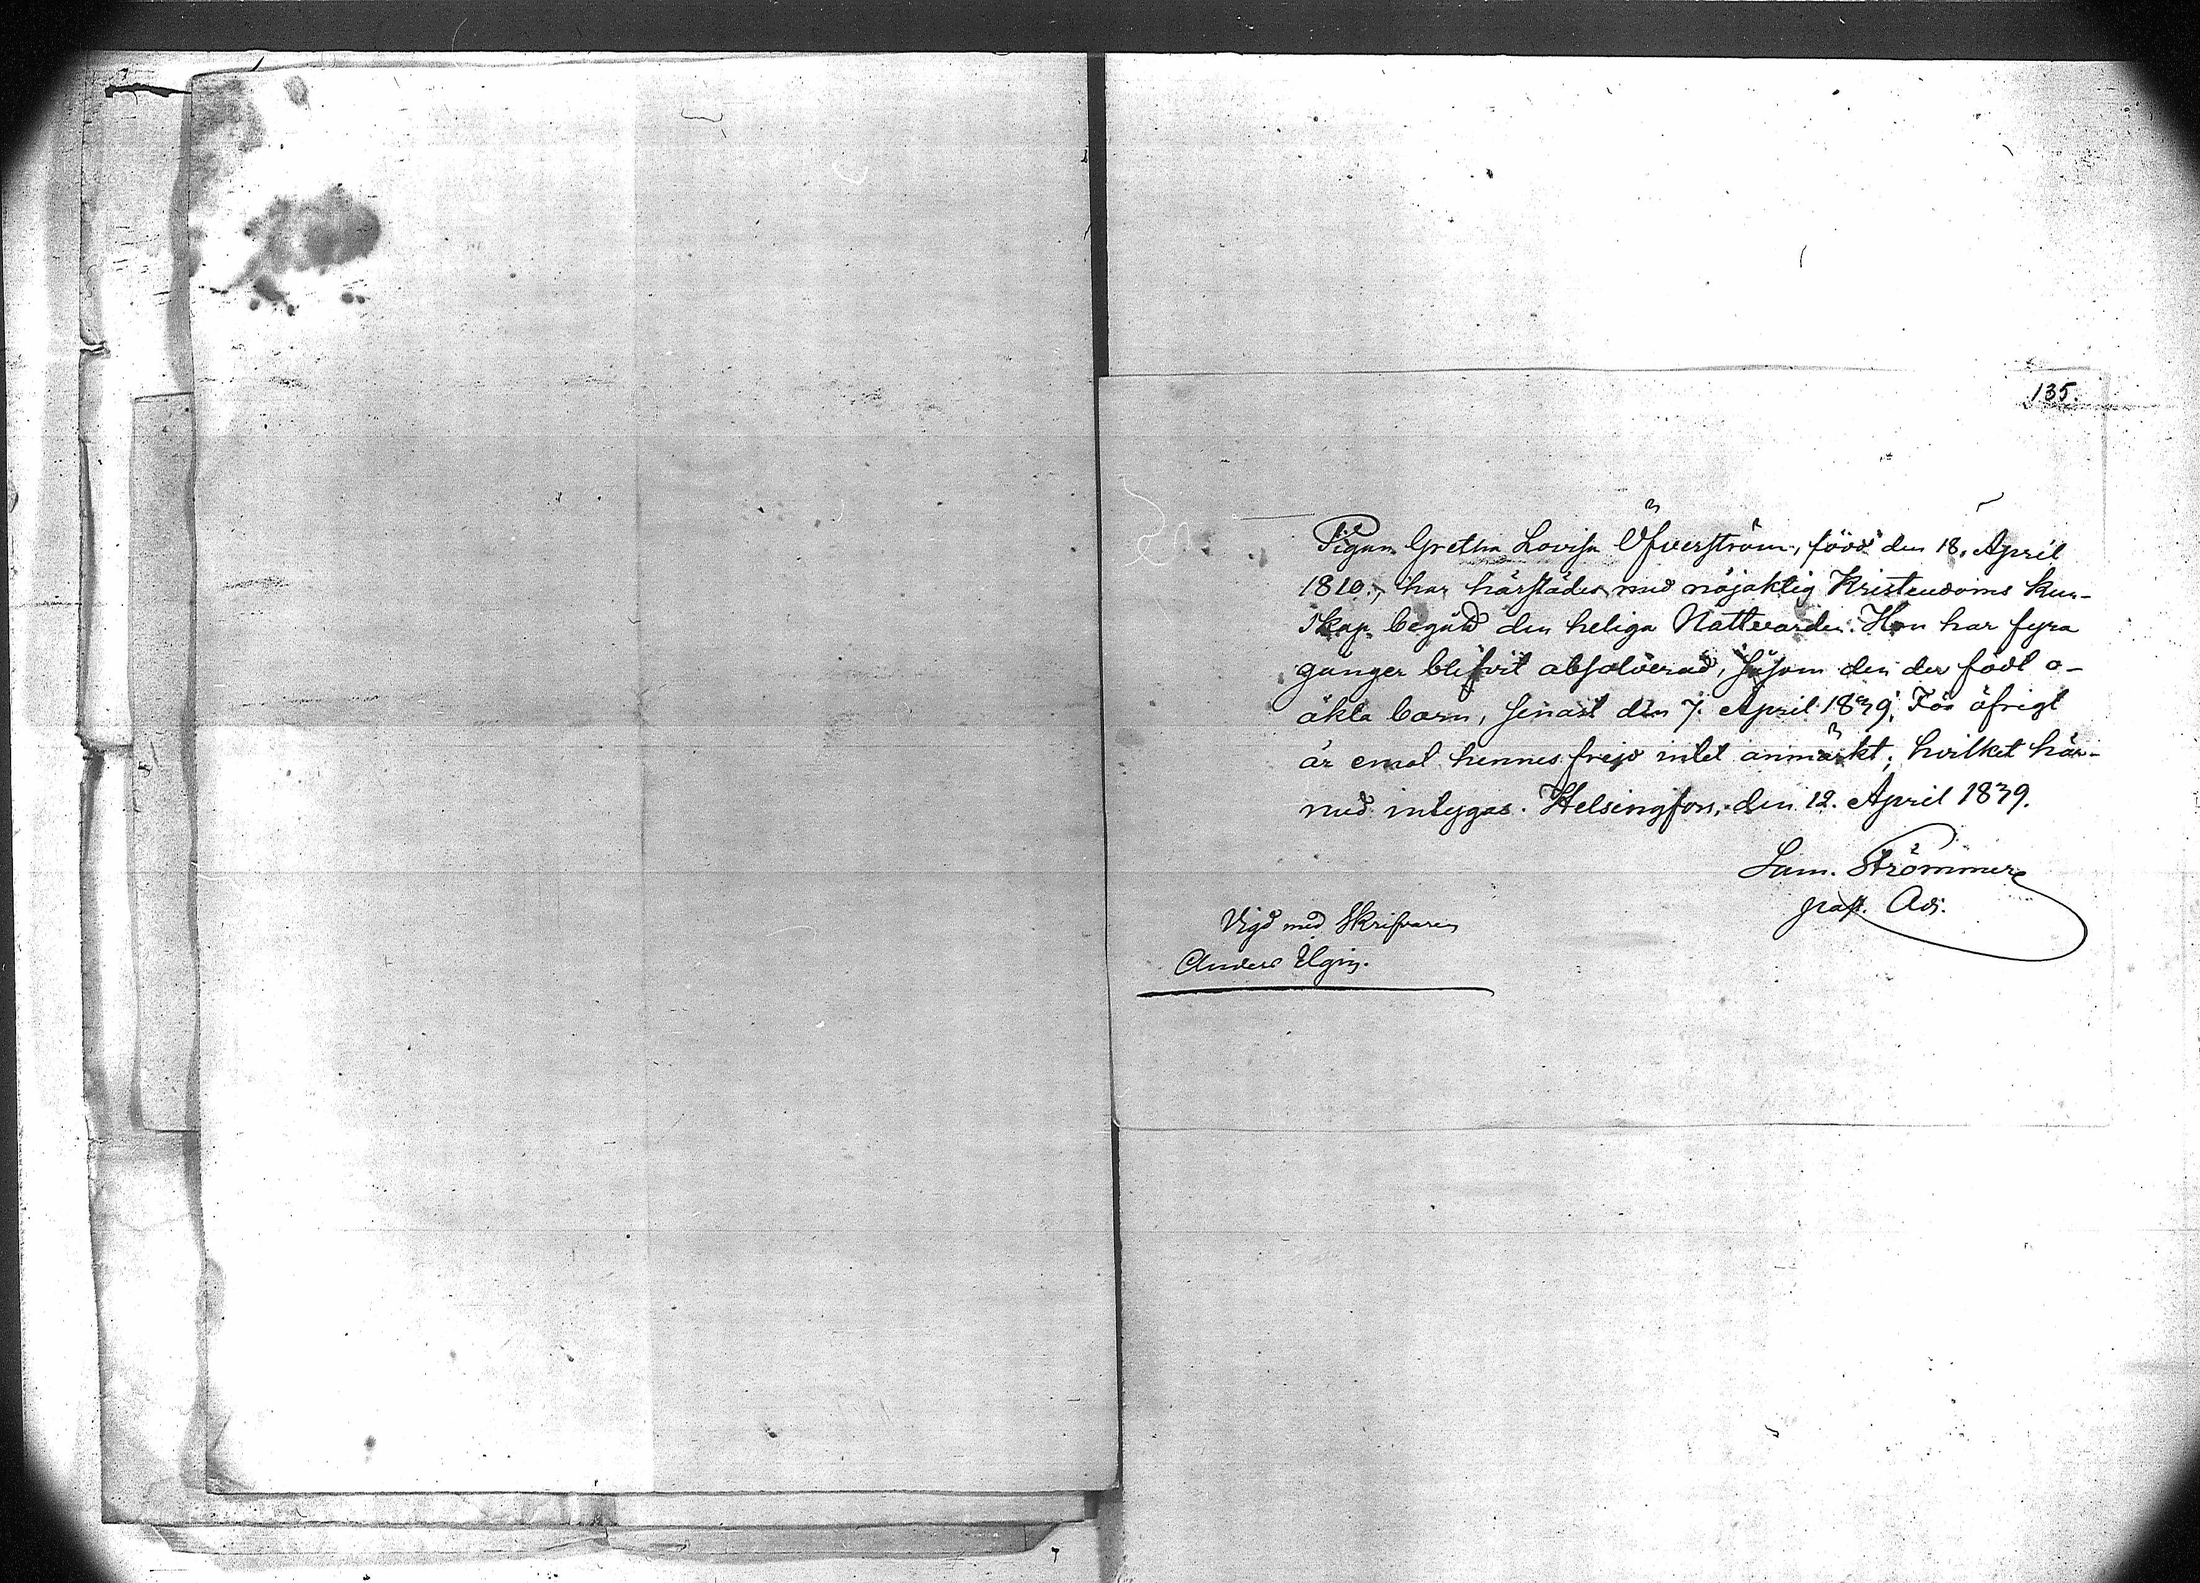 135.
Pigan Gretha Lovisa Öfverström, född den 18. April
1810., har härstädes med nöjaktig Kristendoms kun-
skap begådt den heliga Nattvarden. Hon har fyra
gånger blifvit absolverad, såsom den der födt o-
äkta barn, senast den 7. April 1839. För öfrigt
är emot hennes frejd intet anmärkt; hvilket här-
med intygas. Helsingfors, den 12. April 1839.
Sam. Strömmer
past. Adj.
Vigd med Skrifvaren
Anders Elgin.